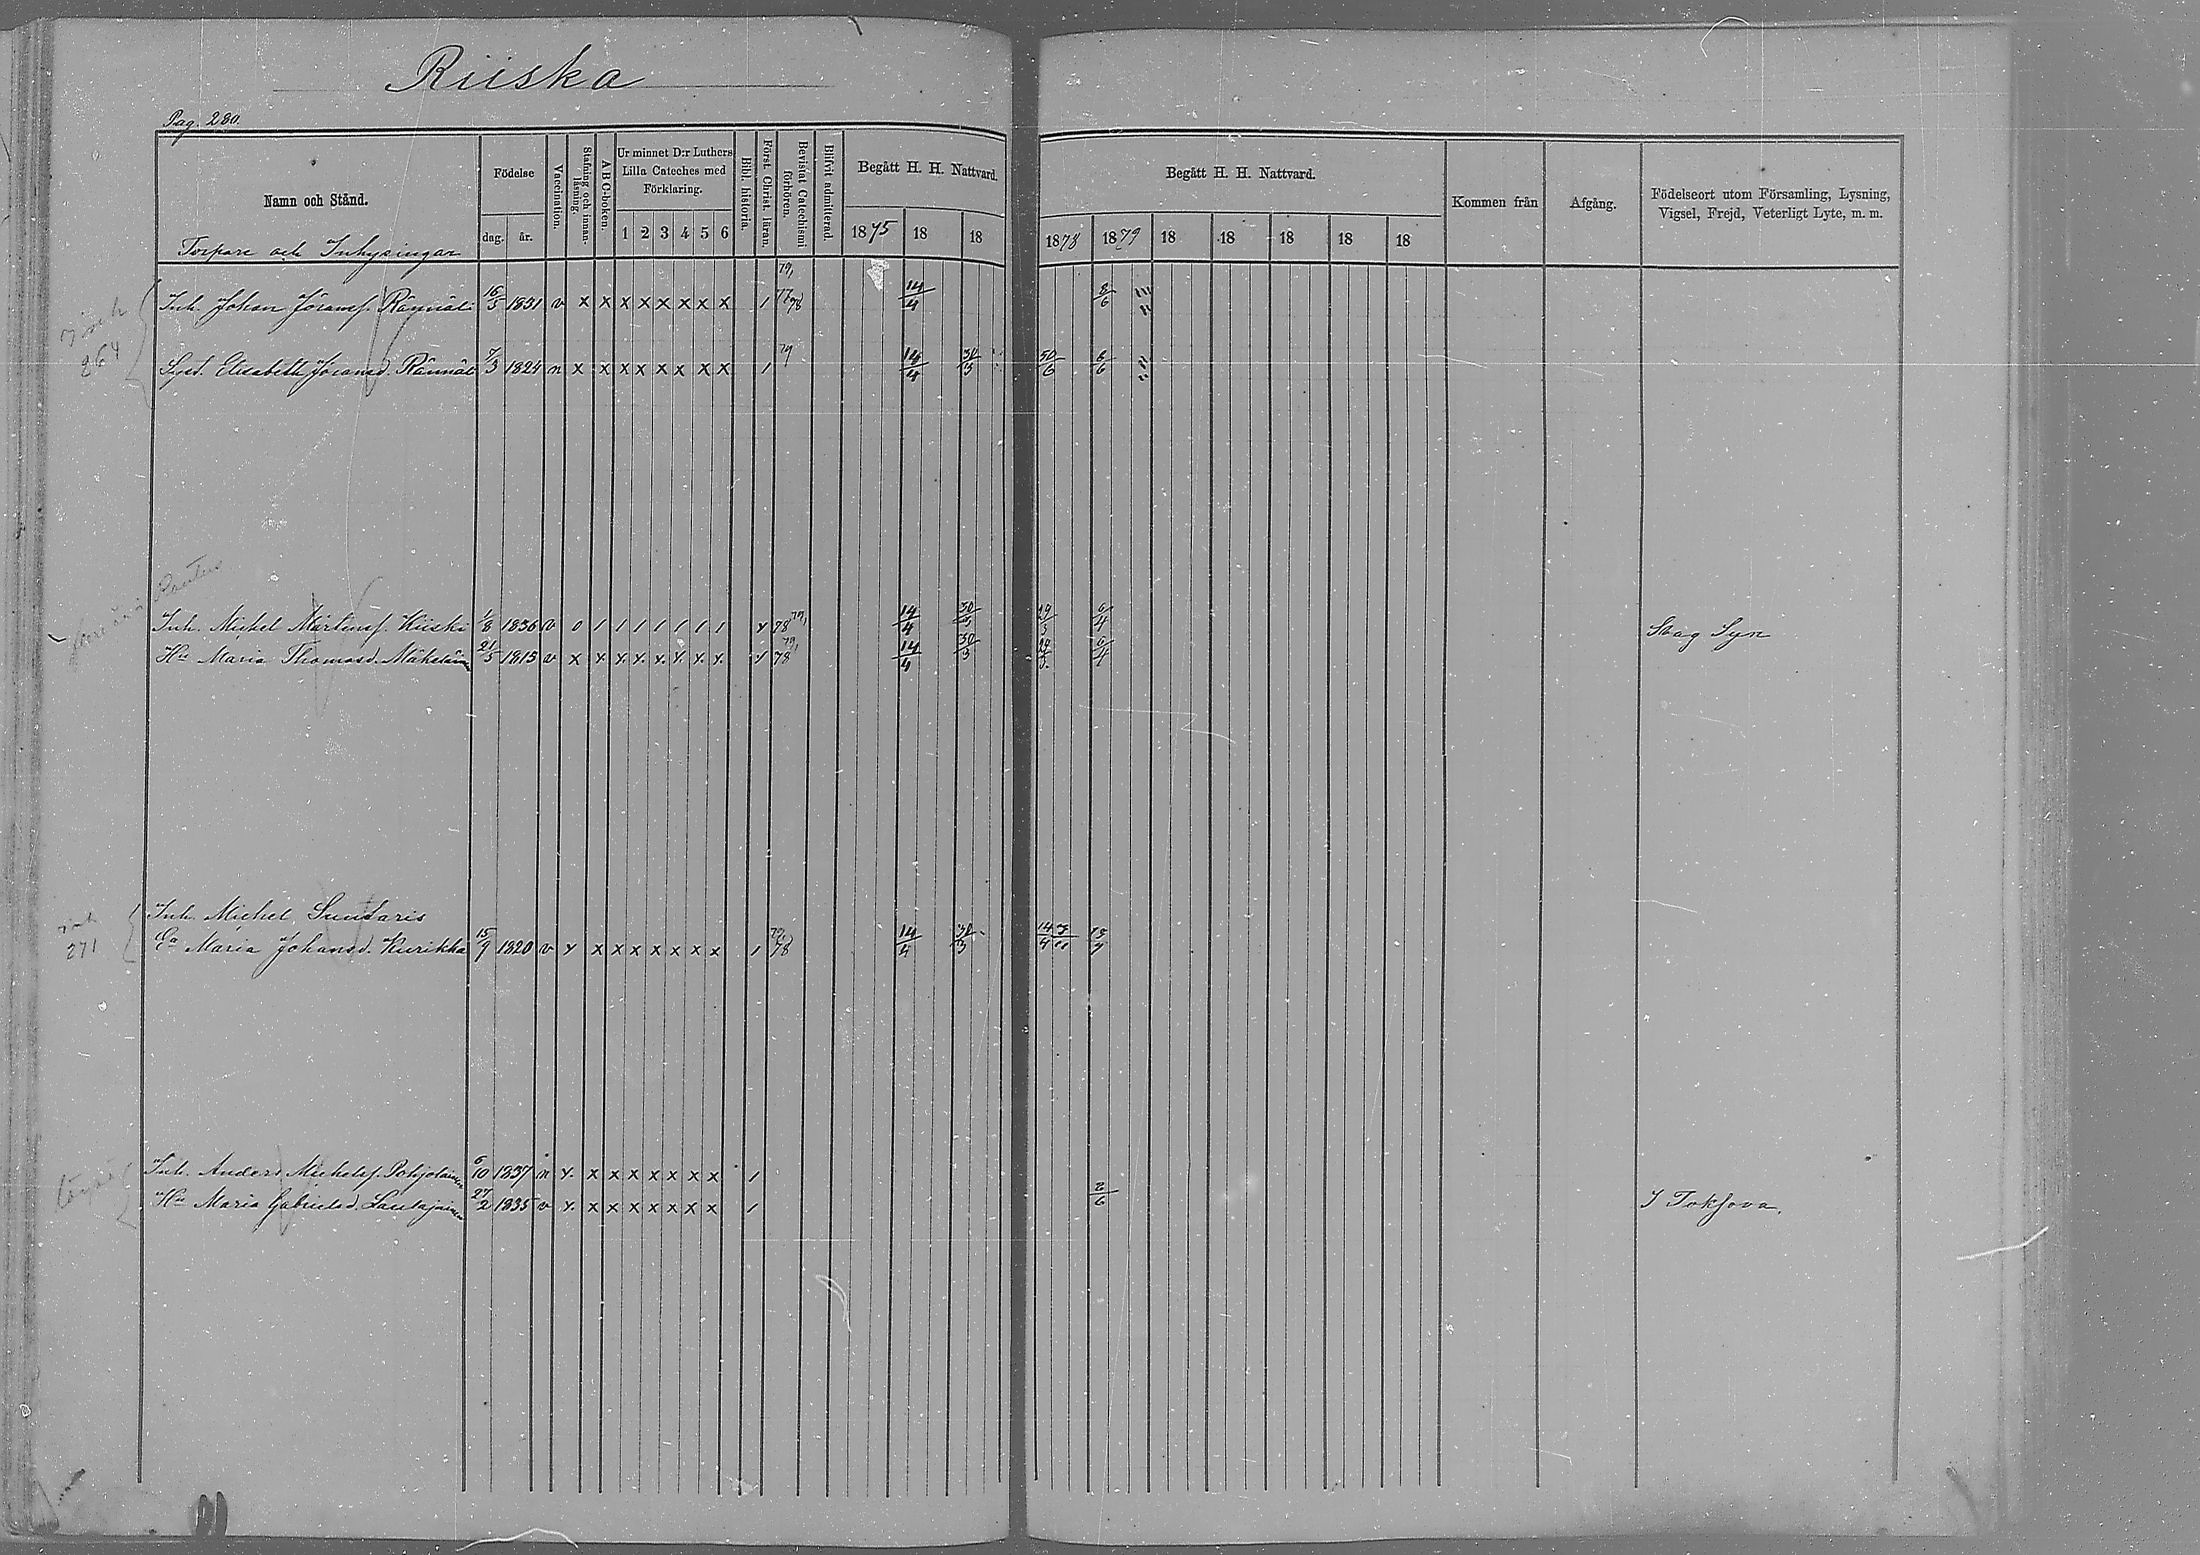 Riiska
Pag. 280.
Namn och Stånd.
Födelse
dag. år.
Vaccination.
Stafning och innanläsning
A B C-boken.
Ur minnet D:r Luthers Lilla Cateches med Förklaring.
1 2 3 4 5 6
Bibl. historia.
Först. Christ. läran.
Bevistat Catechismi förhören.
Blifvit admitterad.
Begått H. H. Nattvard.
1875 18 18
Begått H. H. Nattvard.
1878 1879 18 18 18 18 18
Kommen från
Afgång.
Födelseort utom Församling, Lysning, Vigsel, Frejd, Veterligt Lyte, m. m.
Torpare och Inhysingar
79,
Inh. Johan Jöransf. Rännäli 16/5 1831 v x x x x x x x x 1 77/78 14/4 8/6
264
Syst. Elisabeth Joransd. Rännäli 7/3 1824 n x x x x x x x x 1 79 14/4 30/3 30/6 8/6
Inh. Michel Mårtensf. Kiiski 1/8 1836 v 0 1 1 1 1 1 1 1 x 78 79, 14/4 30/3 29/3 6/4 Stag Syn
Hu Maria Thomasd. Mäkeläinen 21/5 1815 v x x. x. x. x. x. x. x. x 78 79, 14/4 30/3 29/3. 6/4
Inh. Michel Suutaris
271
Ea Maria Johansd. Kurikka 15/9 1820 v x x x x x x x x 1 79/78 14/4 30/3 14/4 13/4
Inh. Anders Michelsf. Pohjolainen 6/10 1837 n x. x x x x x x x 1
Hu Maria Gabrielsd. Lautajainen 27/2 1835 v x. x x x x x x x 1 2/6 I Tokfova.